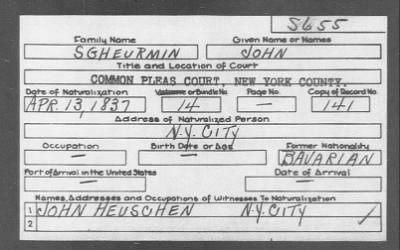 5655
Family Name Given Name or Names
SGHEURMIN JOHN
Title and Location of Court
COMMON PLEAS COURT, NEW YORK COUNTY.
Date of Naturalization Volume or Bundle No. Page No. Copy of Record No.
APR. 13, 1837 14 — 141
Address of Naturalized Person
N.Y. CITY
Occupation Birth Date or Age Former Nationality
— — BAVARIAN
Port of Arrival in the United States Date of Arrival
— —
Names, Addresses and Occupations of Witnesses To Naturalization
1 JOHN HEUSCHEN N.Y. CITY /
2